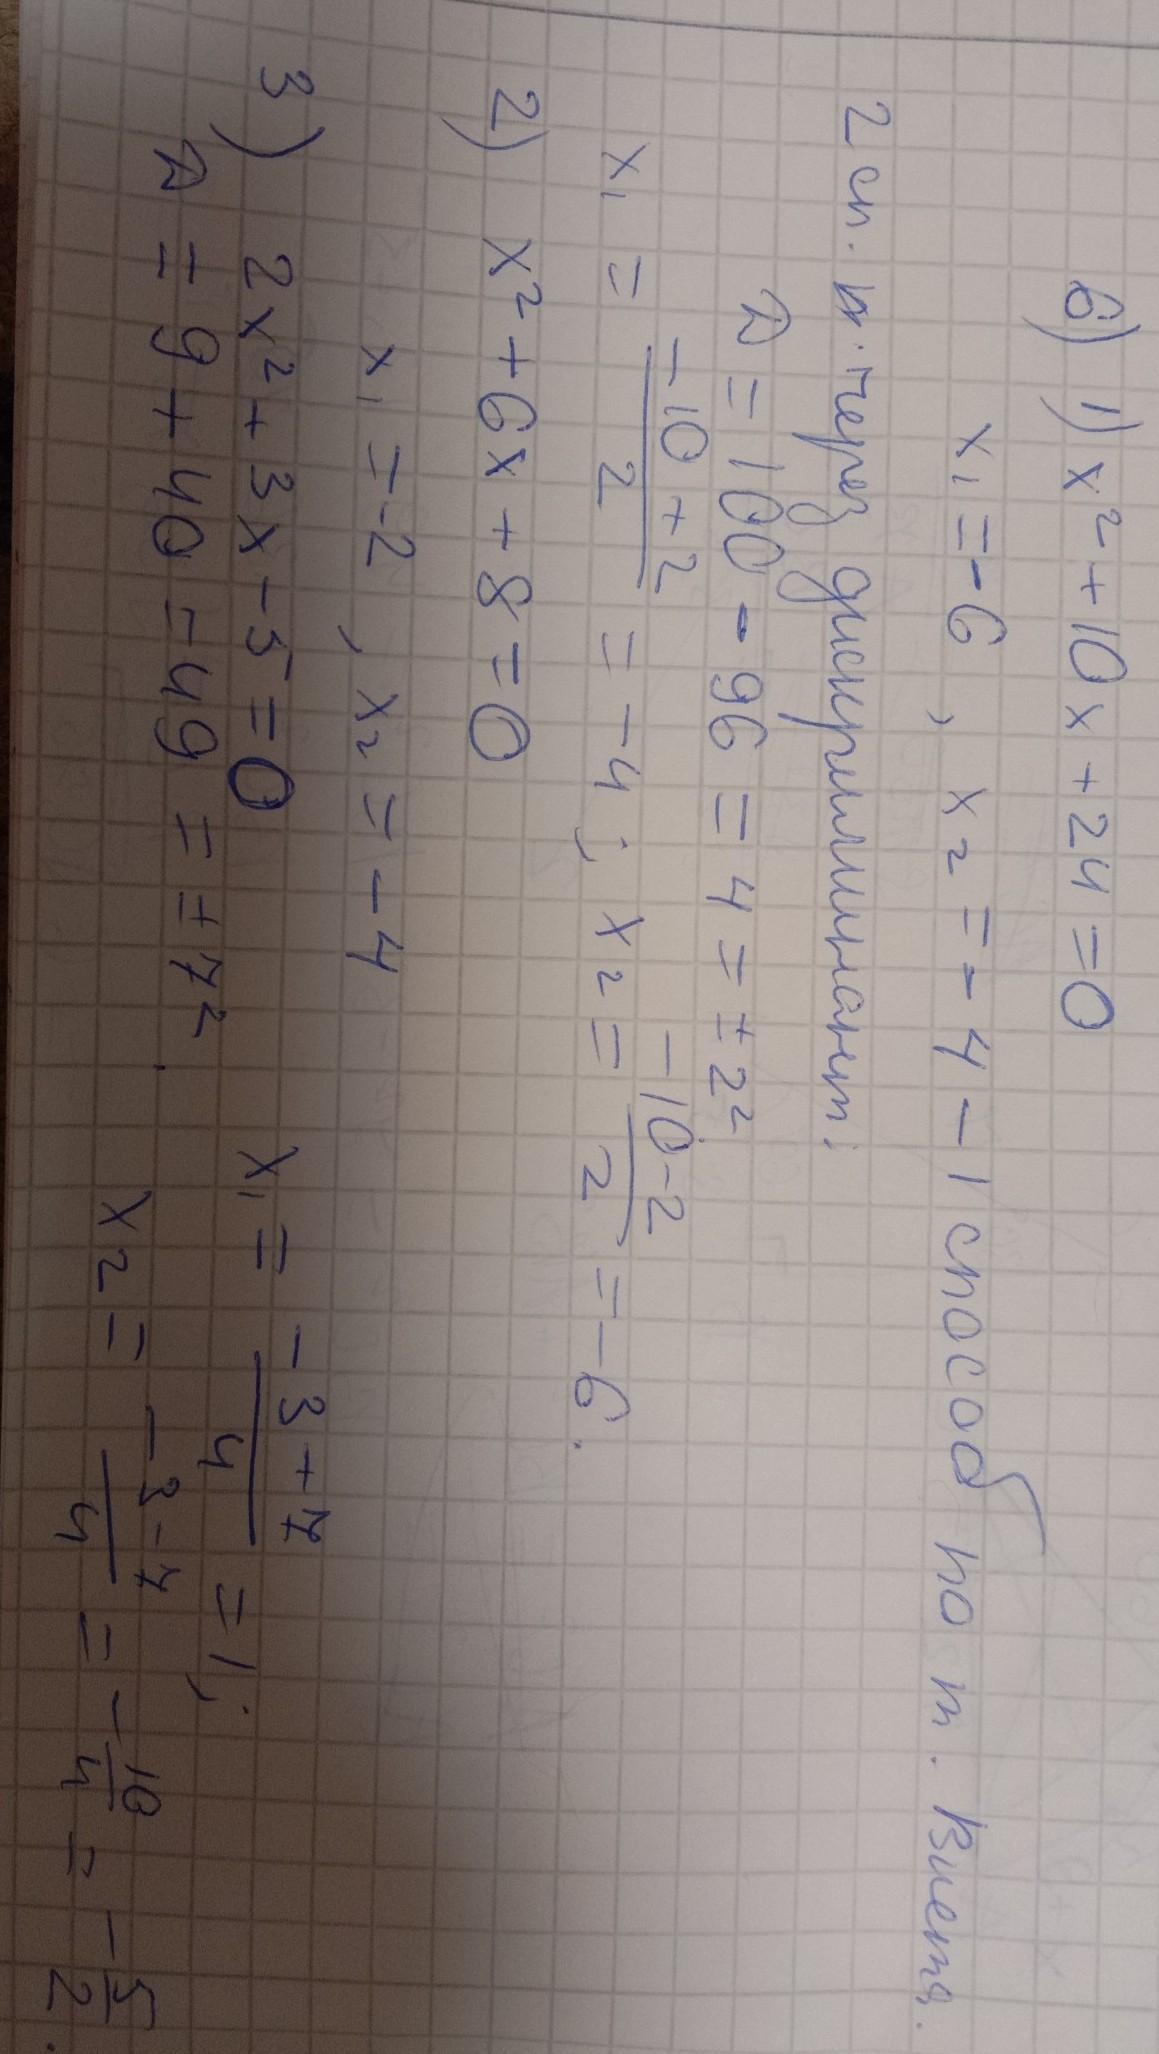 6) 1) x² + 10x + 24 = 0
x₁ = -6, x₂ = -4 - 1 способ по т. Виета.
2 сп. через дискриминант:
D = 100 - 96 = 4 = ±2²
x₁ = (-10 + 2)/2 = -4; x₂ = (-10 - 2)/2 = -6.
2) x² + 6x + 8 = 0
x₁ = -2, x₂ = -4
3) 2x² + 3x - 5 = 0
D = 9 + 40 = 49 = ±7².
x₁ = (-3 + 7)/4 = 1;
x₂ = (-3 - 7)/4 = -10/4 = -5/2.